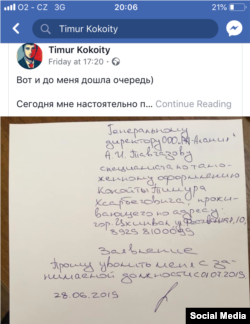 O2 - CZ 3G 20:06 21%
Timur Kokoity
Timur Kokoity
Friday at 17:20
Вот и до меня дошла очередь)
Сегодня мне настоятельно п... Continue Reading
Генеральному
директору ООО
А.И. Тавгазову
специалиста по тамо-
женному оформлению
Кокойты Тимура
прожи-
вающего по адресу
гор. Цхинвал
Заявление
Прошу уволить меня с за-
нимаемой должности с 01.07.2019
28.06.2019
Social Media